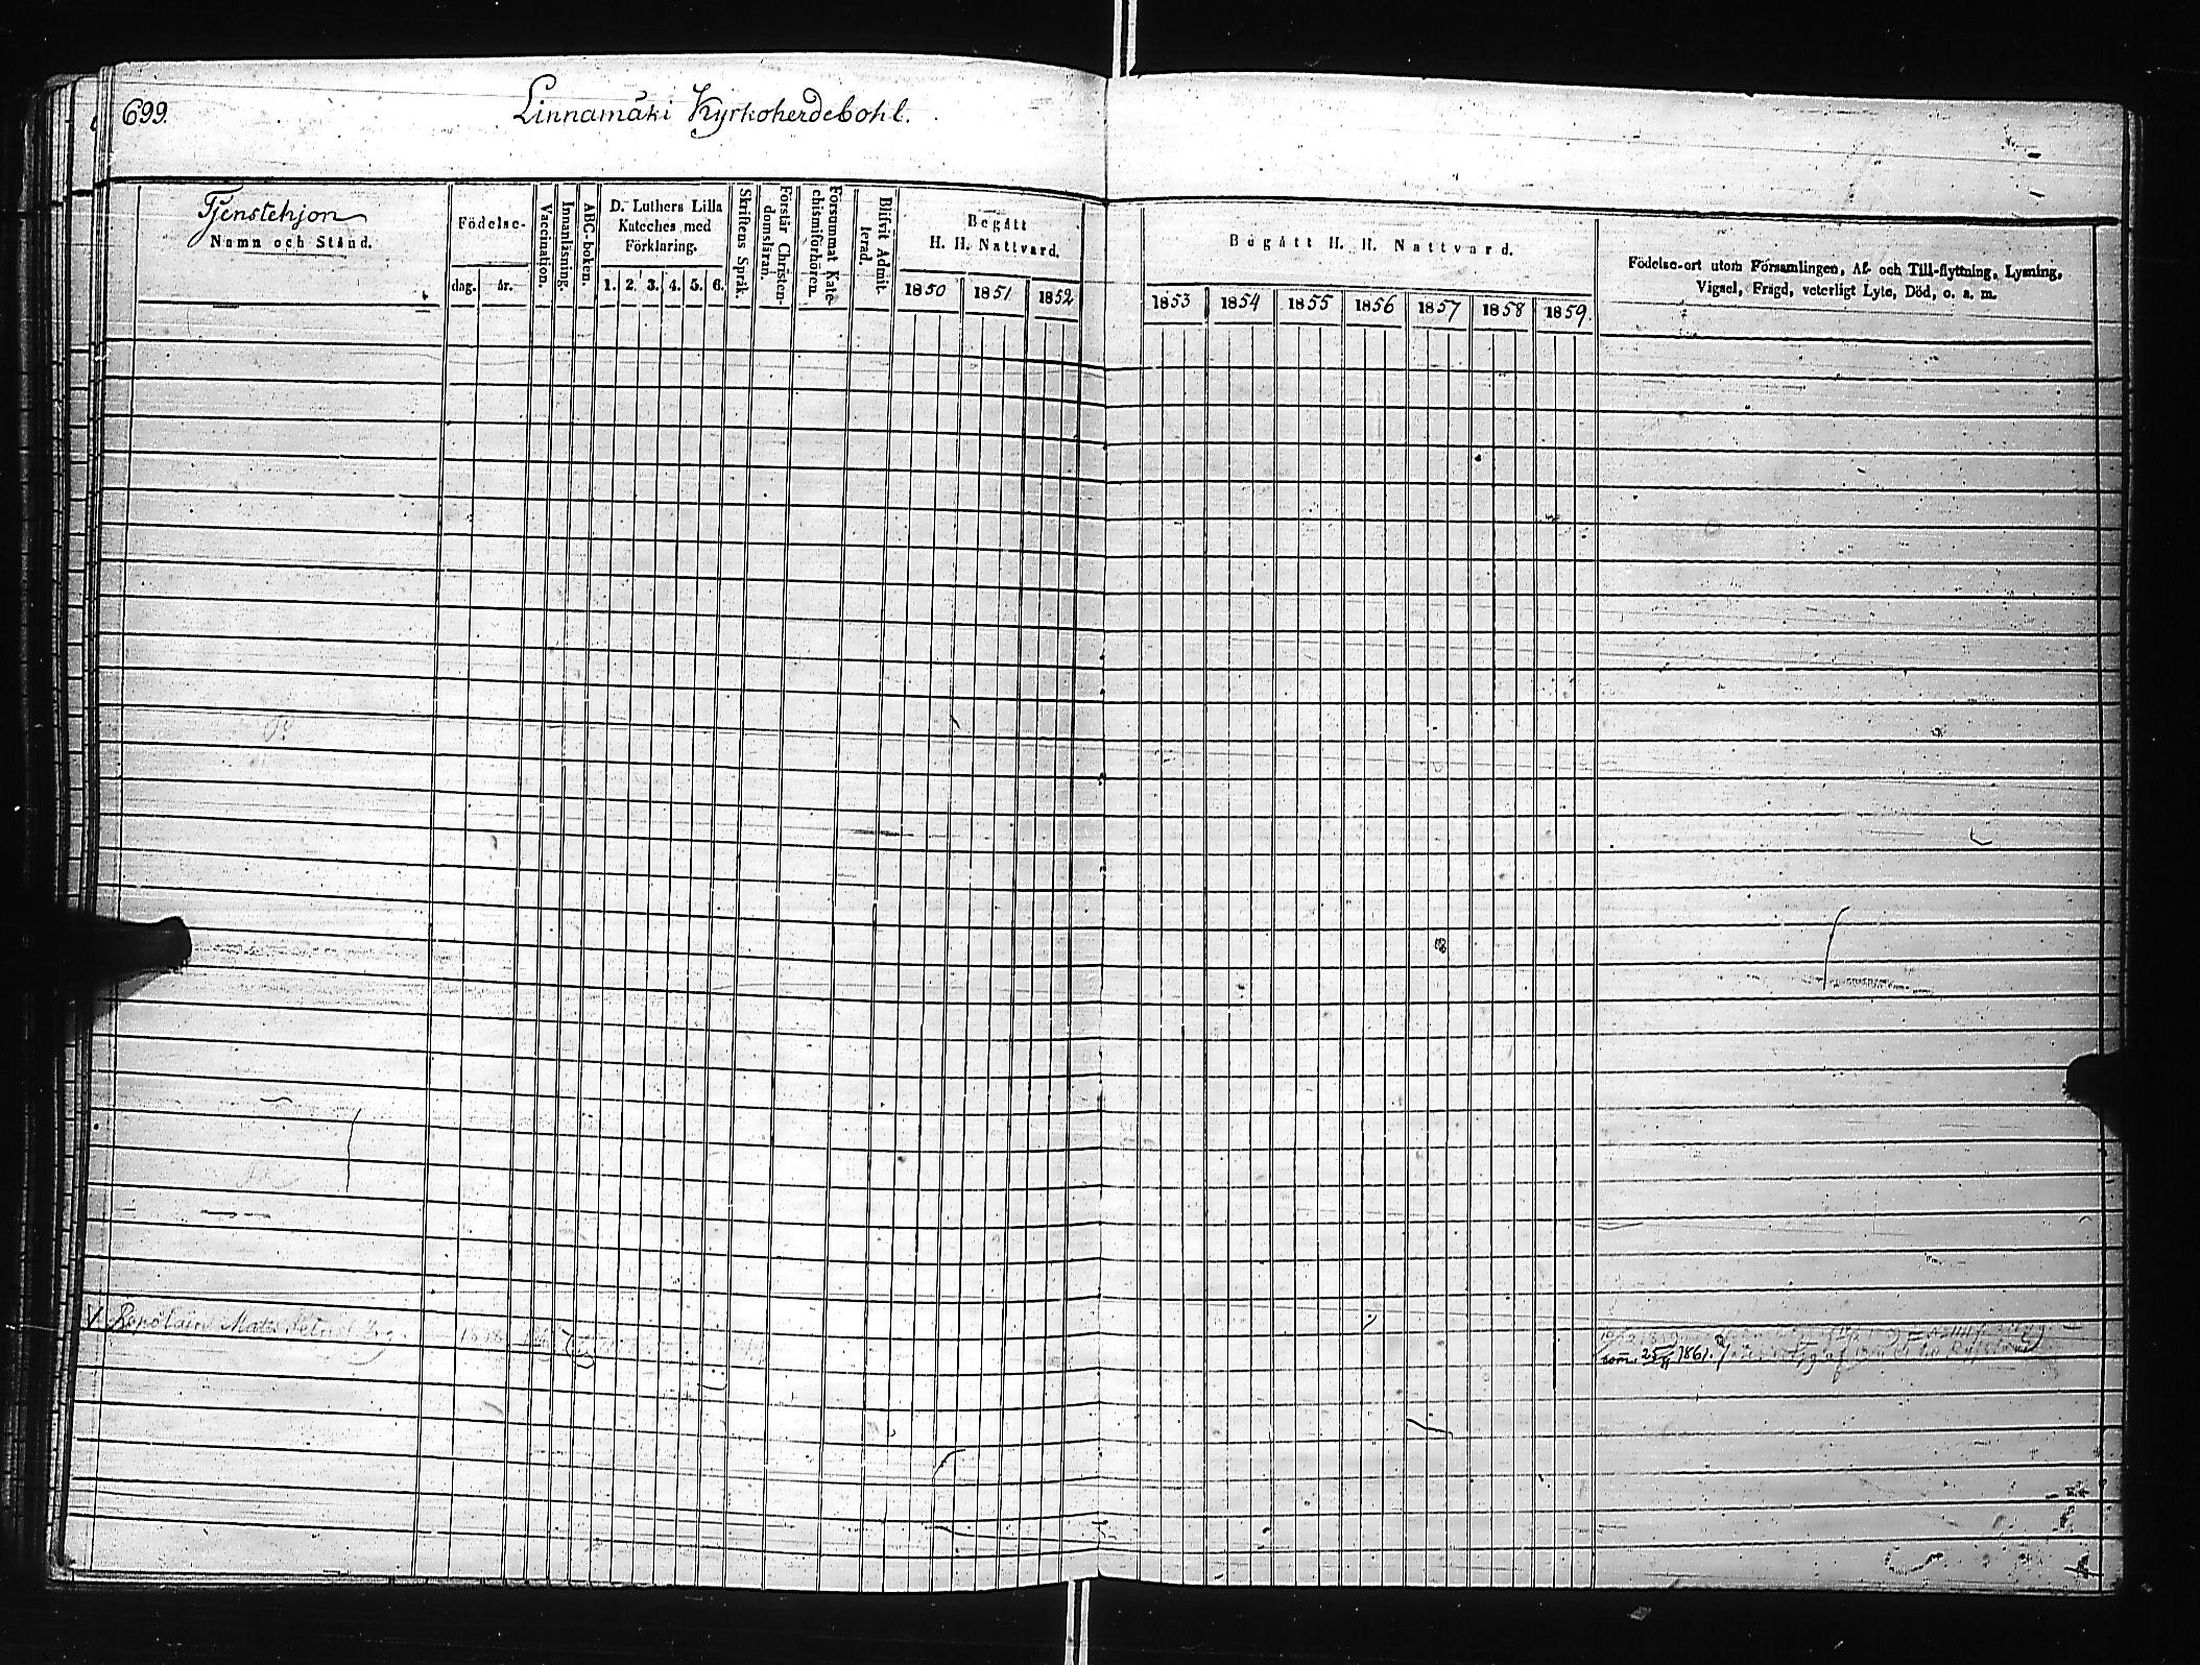 699.
Linnamäki Kyrkoherdebohl.
Tjenstehjon
Namn och Stånd.
Födelse-
dag.
år.
Vaccination.
Innanläsning.
ABC-boken.
D. Luthers Lilla
Kateches med
Förklaring.
1. 2. 3. 4. 5. 6.
Skriftens Språk.
Förstår Christen-
domsläran.
Försummat Kate-
chismiförhören.
Blifvit Admit-
terad.
Begått
H. H. Nattvard.
1850 1851 1852
Begått H. H. Nattvard.
1853 1854 1855 1856 1857 1858 1859.
Födelse-ort utom Församlingen, Af- och Till-flyttning, Lysning,
Vigsel, Frägd, veterligt Lyte, Död, o. a. m.
1861.